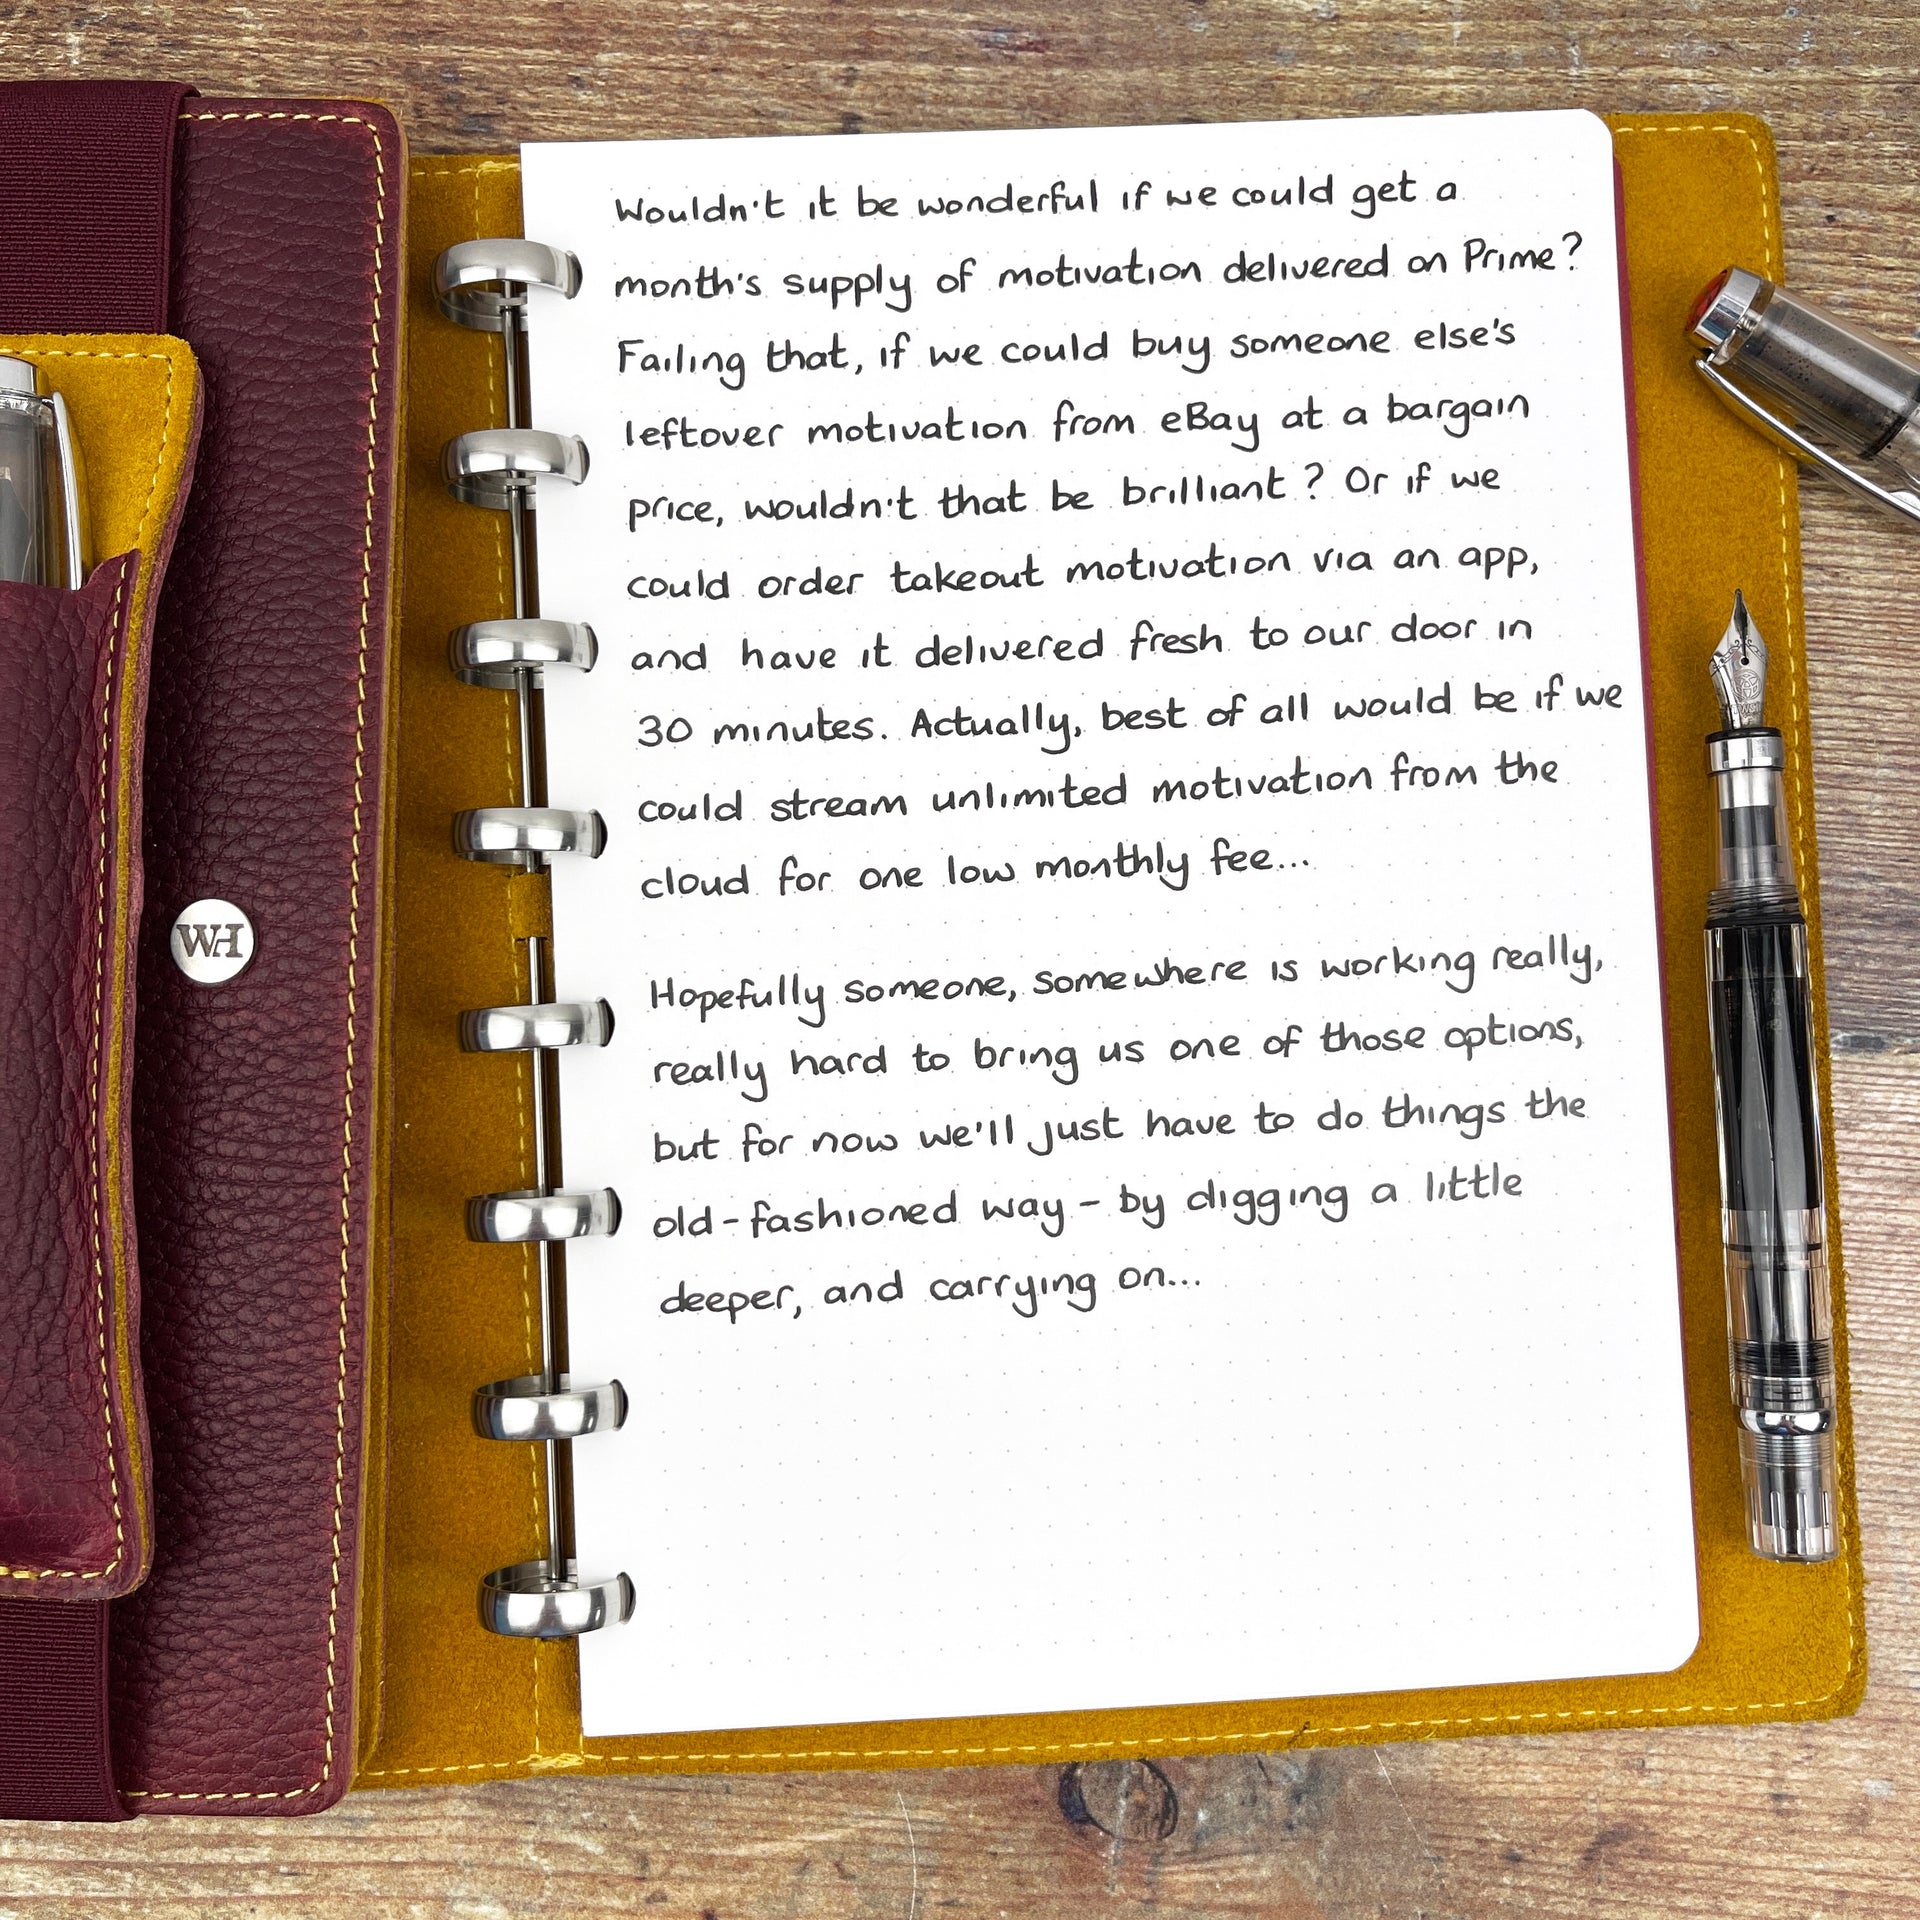 WH
Wouldn't it be wonderful if we could get a
month's supply of motivation delivered on Prime?
Failing that, if we could buy someone else's
leftover motivation from eBay at a bargain
price, wouldn't that be brilliant? Or if we
could order takeout motivation via an app,
and have it delivered fresh to our door in
30 minutes. Actually, best of all would be if we
could stream unlimited motivation from the
cloud for one low monthly fee...
Hopefully someone, somewhere is working really,
really hard to bring us one of those options,
but for now we'll just have to do things the
old-fashioned way - by digging a little
deeper, and carrying on...